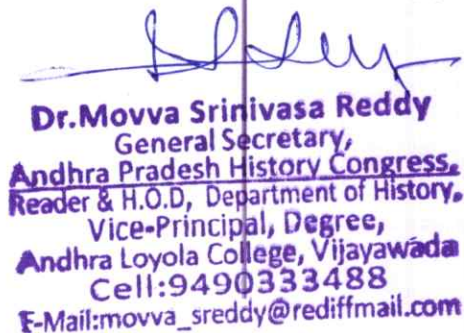 Dr.Movva Srinivasa Reddy
General Secretary,
Andhra Pradesh History Congress,
Reader & H.O.D, Department of History,
Vice-Principal, Degree,
Andhra Loyola College, Vijayawada
Cell:9490333488
E-Mail:movva_sreddy@rediffmail.com